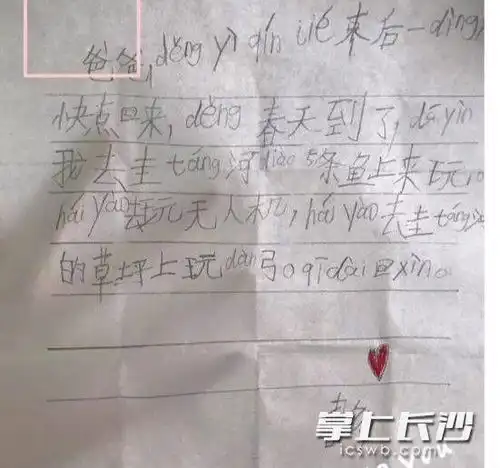 爸爸,děng yì qín jié 来后一dìng
快点回来,děng 春天到了,dā yìn
我去圭táng河diào 5条鱼上来玩,
hái yào去玩无人机,hái yào去圭táng河
的草坪上玩dàn弓。qī dài 回xìn。
掌上长沙
icswb.com
you